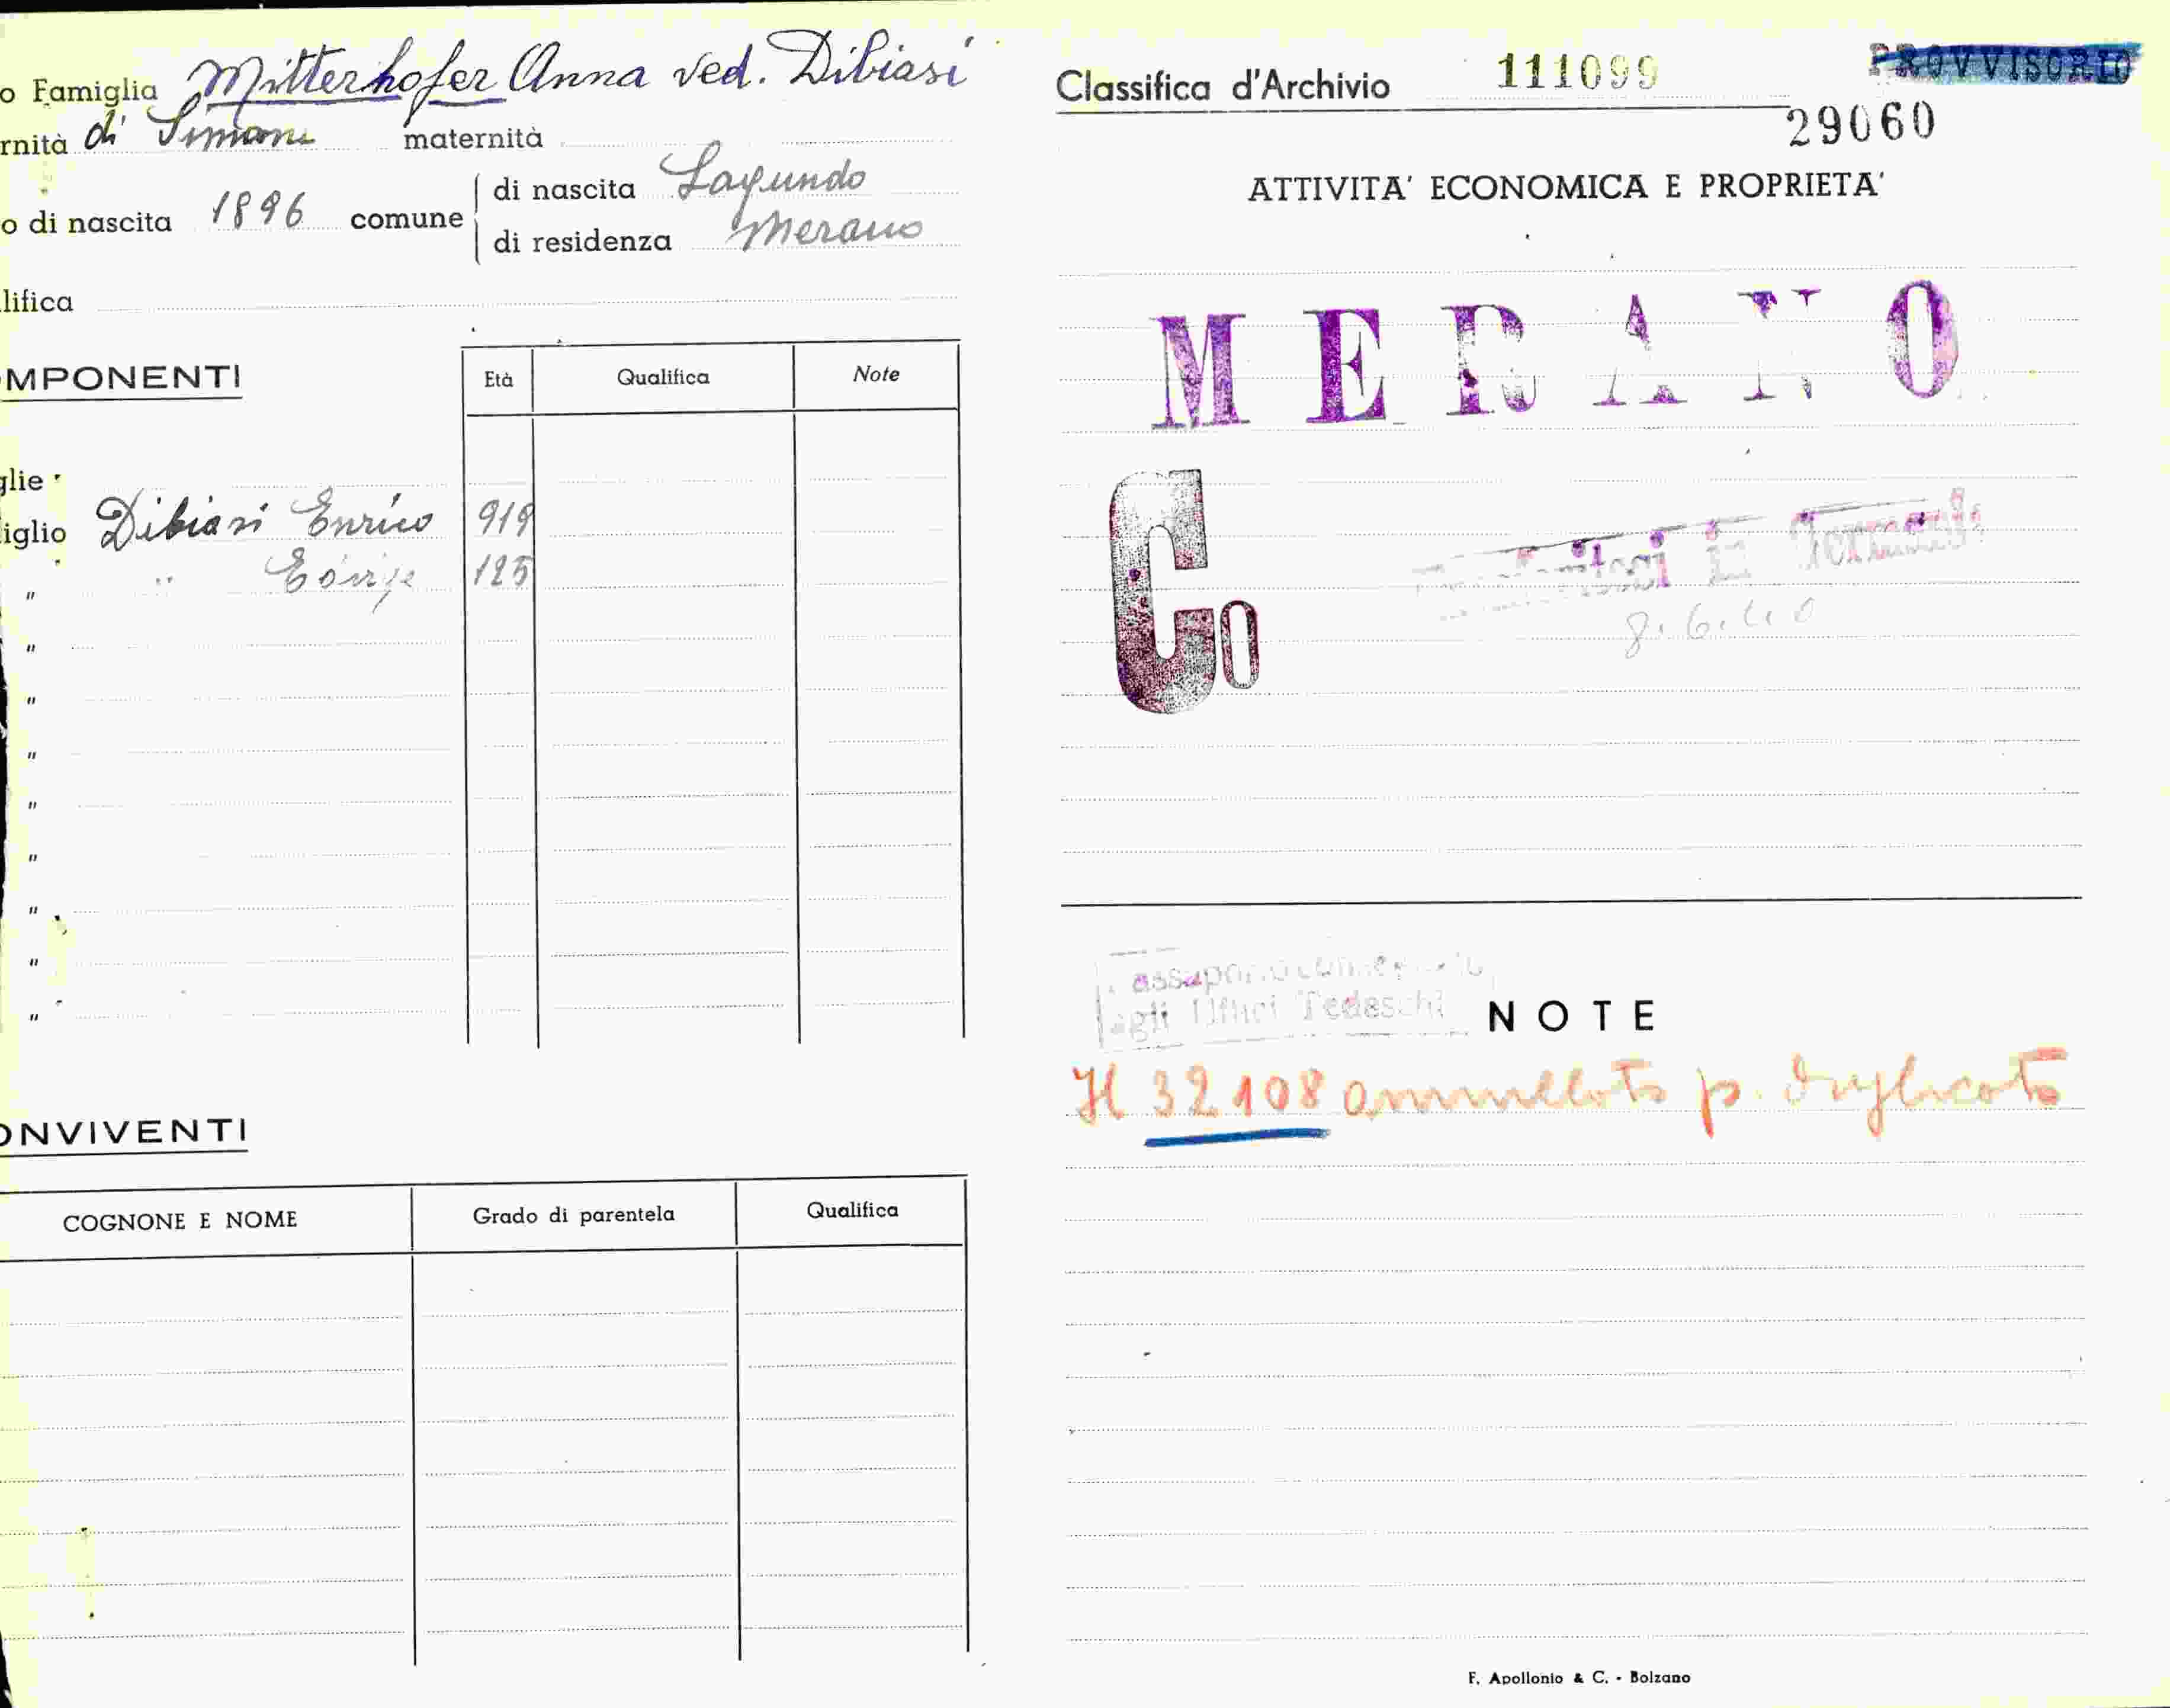 o Famiglia Mitterhofer Anna ved. Dibiasi
rnità di Simone maternità
o di nascita 1896 comune di nascita Lagundo
di residenza Merano
lifica
MPONENTI
Età Qualifica Note
glie
iglio Dibiasi Enrico 919
" " 125
"
"
"
"
"
"
"
"
ONVIVENTI
COGNONE E NOME Grado di parentela Qualifica
Classifica d'Archivio 111099 PROVVISORIO
29060
ATTIVITA' ECONOMICA E PROPRIETA'
MERANO
Co
in
agli Uffici Tedeschi
NOTE
H 32108 annullato p. duplicato
F. Apollonio & C. - Bolzano